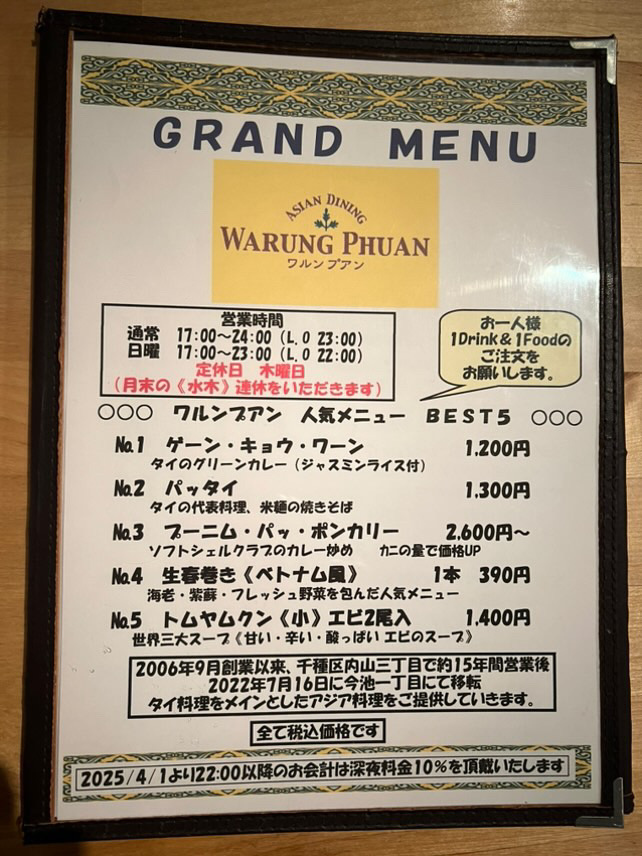 GRAND MENU
ASIAN DINING
WARUNG PHUAN
ワルンプアン
営業時間
通常 17:00〜24:00（L.O 23:00）
日曜 17:00〜23:00（L.O 22:00）
定休日 木曜日
（月末の《水木》連休をいただきます）
お一人様
1Drink＆1Foodの
ご注文を
お願いします。
○○○ ワルンプアン 人気メニュー BEST5 ○○○
No.1 ゲーン・キョウ・ワーン 1,200円
タイのグリーンカレー（ジャスミンライス付）
No.2 パッタイ 1,300円
タイの代表料理、米麺の焼きそば
No.3 プーニム・パッ・ポンカリー 2,600円〜
ソフトシェルクラブのカレー炒め カニの量で価格UP
No.4 生春巻き《ベトナム風》 1本 390円
海老・紫蘇・フレッシュ野菜を包んだ人気メニュー
No.5 トムヤムクン《小》エビ2尾入 1,400円
世界三大スープ《甘い・辛い・酸っぱい エビのスープ》
2006年9月創業以来、千種区内山三丁目で約15年間営業後
2022年7月16日に今池一丁目にて移転
タイ料理をメインとしたアジア料理をご提供していきます。
全て税込価格です
2025/4/1より22:00以降のお会計は深夜料金10％を頂戴いたします